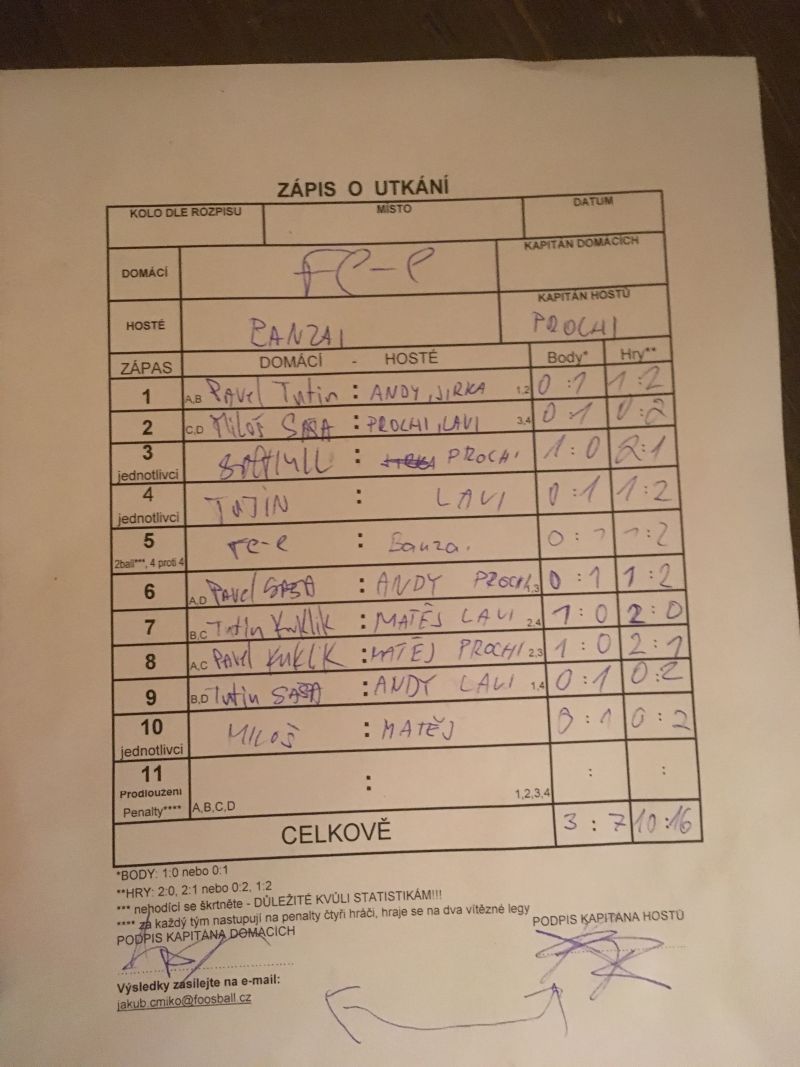 ZÁPIS O UTKÁNÍ
KOLO DLE ROZPISU MÍSTO DATUM
DOMÁCÍ FC-e KAPITÁN DOMÁCÍCH
HOSTÉ BANZAI KAPITÁN HOSTŮ PROCHI
ZÁPAS DOMÁCÍ - HOSTÉ Body* Hry**
1 A,B Pavel Tutin : ANDY, JIRKA 1,2 0:1 1:2
2 C,D Miloš SAŠA : PROCHI, LAVI 3,4 0:1 0:2
3 jednotlivci : PROCHI 1:0 2:1
4 jednotlivci TUTIN : LAVI 0:1 1:2
5 2ball***, 4 proti 4 FC-e : Banzai 0:1 1:2
6 A,D Pavel SAŠA : ANDY PROCHI 1,3 0:1 1:2
7 B,C Tutin Kuklik : MATĚJ LAVI 2,4 1:0 2:0
8 A,C Pavel KUKLIK : MATĚJ PROCHI 2,3 1:0 2:1
9 B,D Tutin SAŠA : ANDY LAVI 1,4 0:1 0:2
10 jednotlivci MILOŠ : MATĚJ 0:1 0:2
11 Prodloužení Penalty**** A,B,C,D : 1,2,3,4 : :
CELKOVĚ 3:7 10:16
*BODY: 1:0 nebo 0:1
**HRY: 2:0, 2:1 nebo 0:2, 1:2
*** nehodící se škrtněte - DŮLEŽITÉ KVŮLI STATISTIKÁM!!!
**** za každý tým nastupují na penalty čtyři hráči, hraje se na dva vítězné legy
PODPIS KAPITÁNA DOMÁCÍCH PODPIS KAPITÁNA HOSTŮ
Výsledky zasílejte na e-mail:
jakub.cmiko@foosball.cz